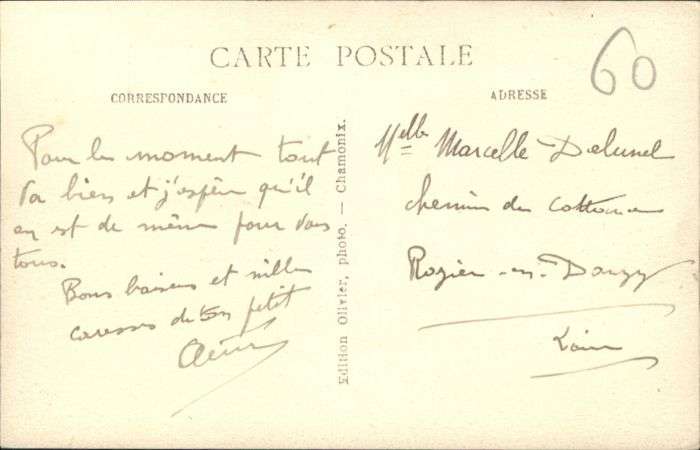 CARTE POSTALE
60
CORRESPONDANCE
Pour le moment tout
va bien et j'espère qu'il
en est de même pour vous
tous.
Bons baisers et mille
caresses de ton petit
Edition Olivier, photo. — Chamonix.
ADRESSE
Melle Marcelle Delunel
chemin du
Rozier-en-Donzy
Loire